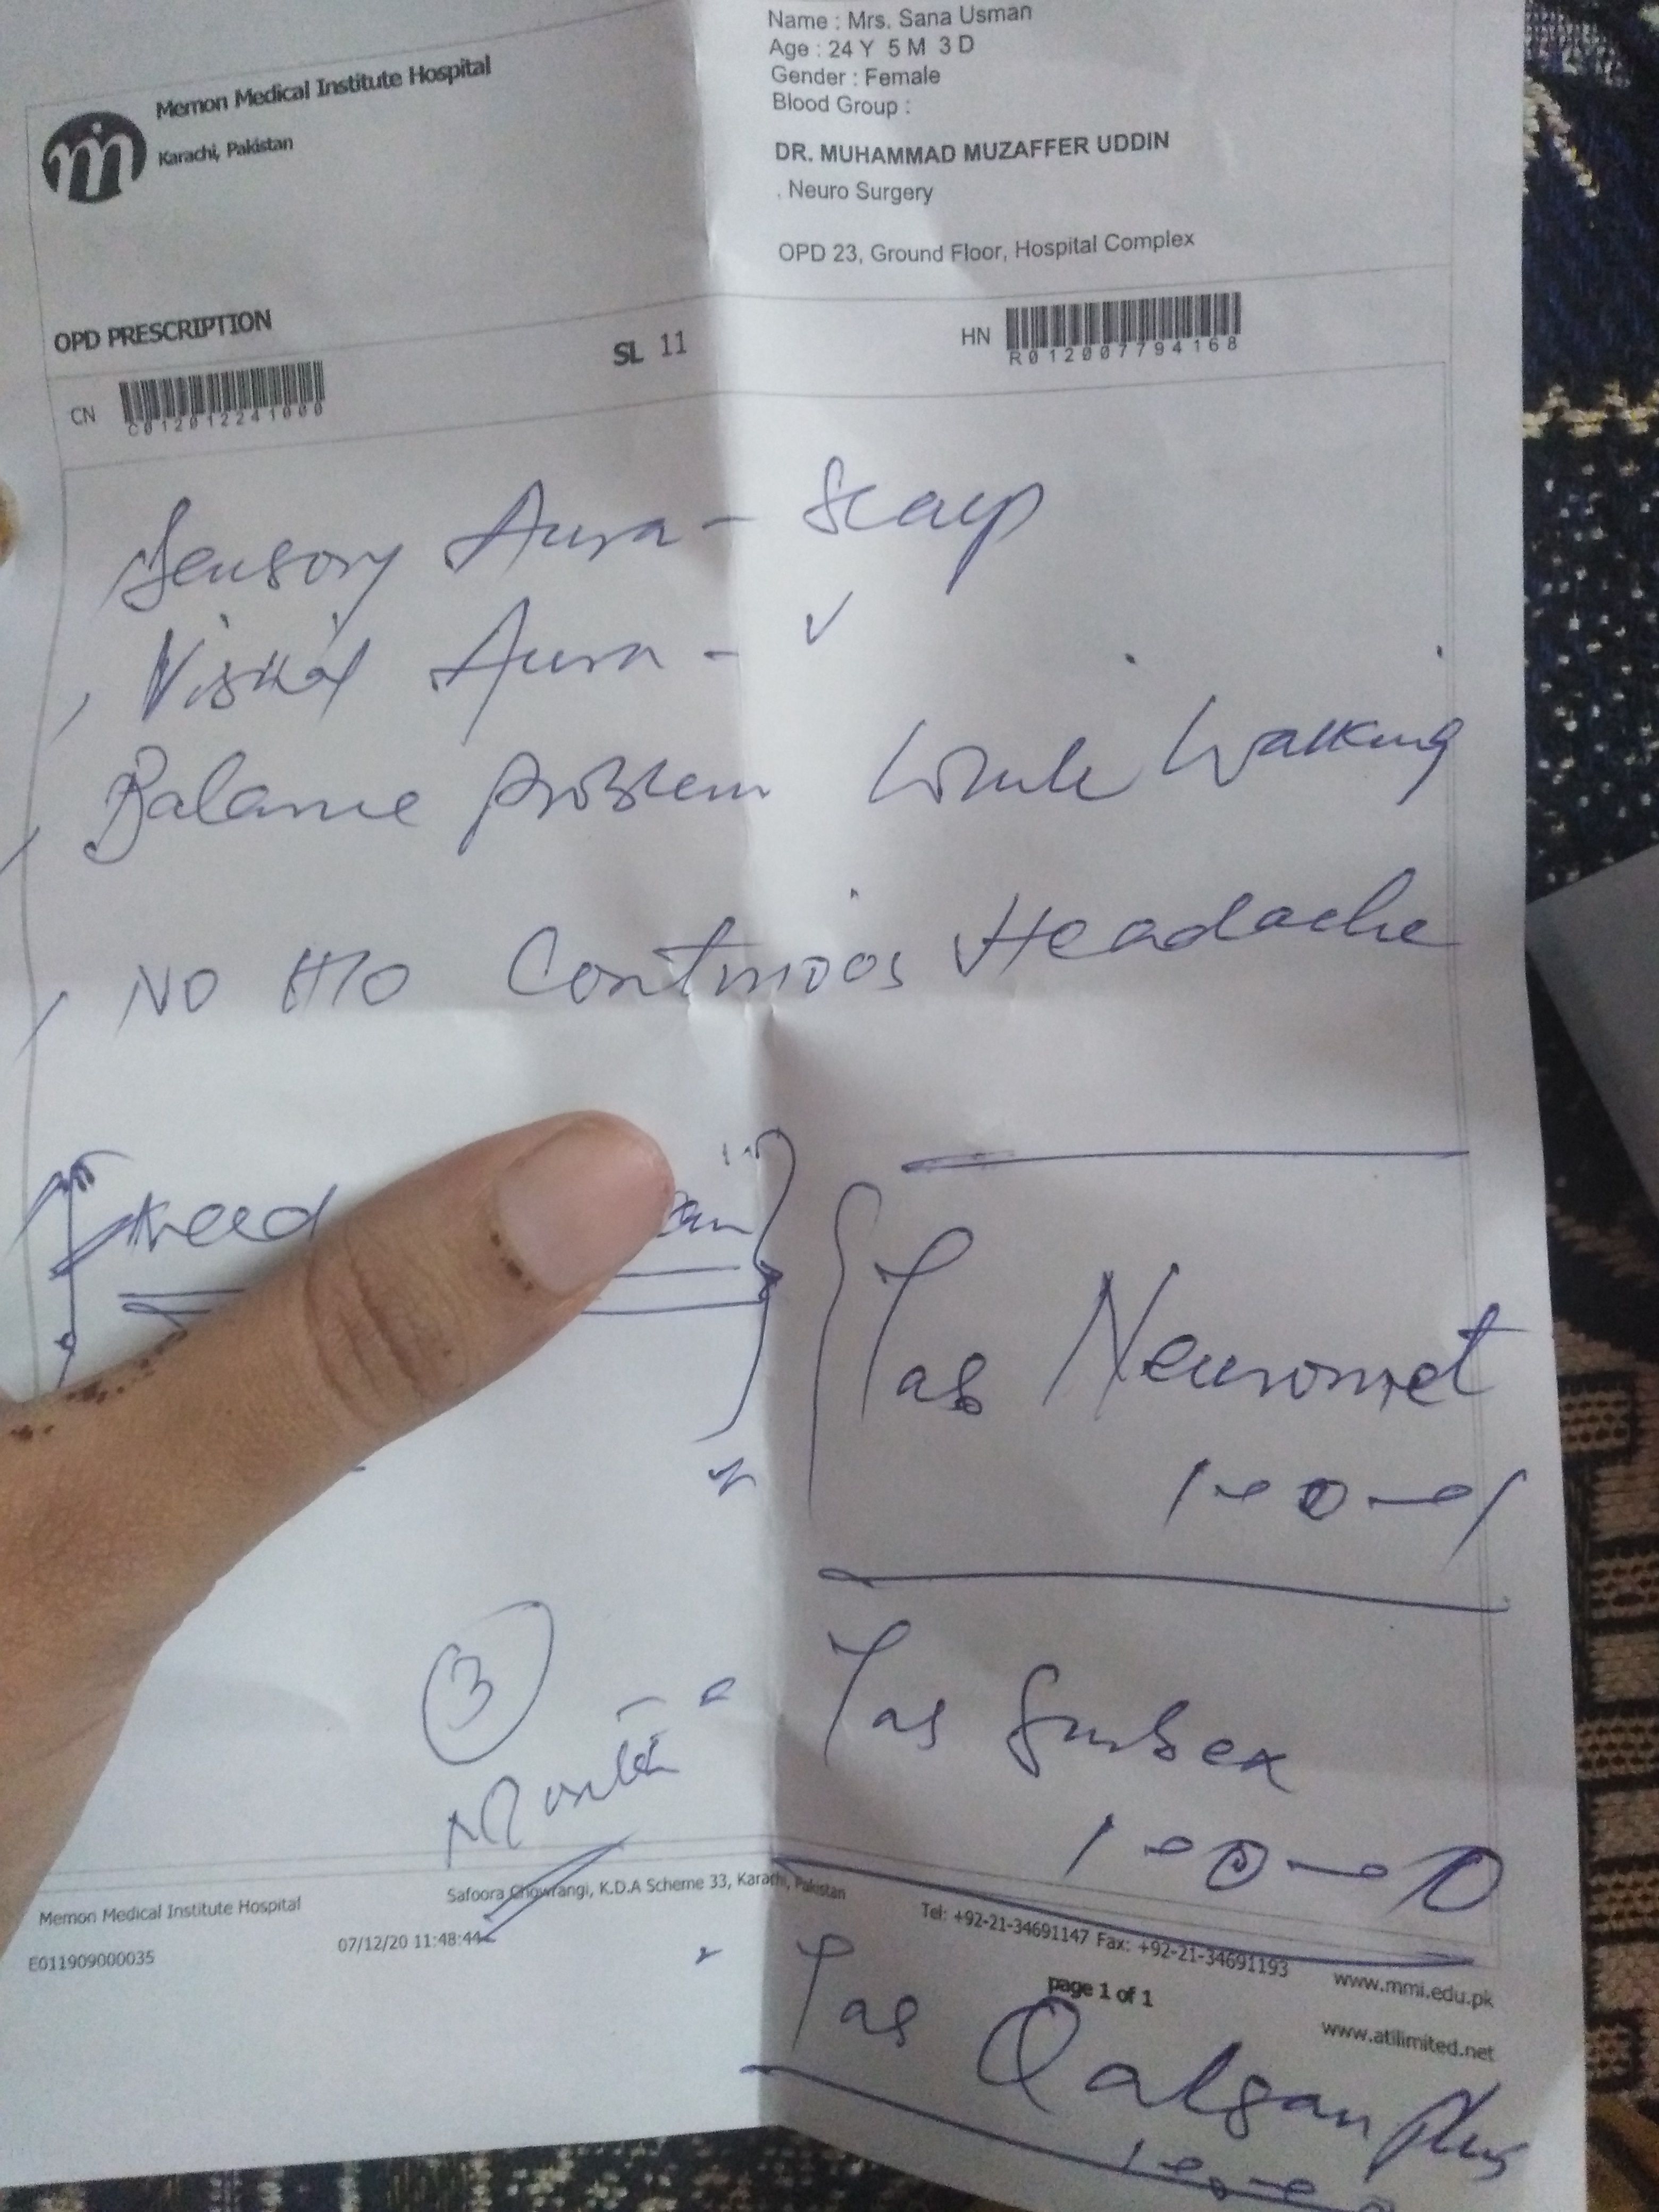 Memon Medical Institute Hospital
Karachi, Pakistan
Name : Mrs. Sana Usman
Age : 24 Y 5 M 3 D
Gender : Female
Blood Group :
DR. MUHAMMAD MUZAFFER UDDIN
. Neuro Surgery
OPD 23, Ground Floor, Hospital Complex
OPD PRESCRIPTION
SL 11
CN
C012012241000
HN
R012007794168
Sensory Aura -
Visual Aura - ✓
Balance problem while walking
NO H/O Continoos Headache
Tab Neuromet
1-0-1
Tab Surbex
1-0-0
3
Tab Qalsan Plus
Memon Medical Institute Hospital
Safoora Chowrangi, K.D.A Scheme 33, Karachi, Pakistan
Tel: +92-21-34691147 Fax: +92-21-34691193
www.mmi.edu.pk
E011909000035
07/12/20 11:48:44
page 1 of 1
www.atilimited.net